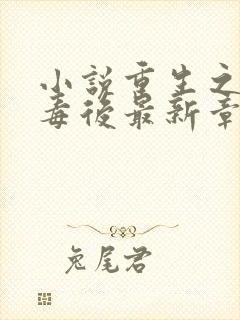 小说重生之
毒后最新章
兔尾君